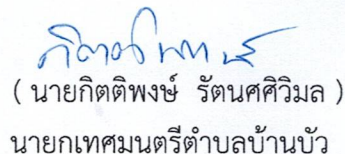 ( นายกิตติพงษ์ รัตนศศิวิมล )
นายกเทศมนตรีตำบลบ้านบัว